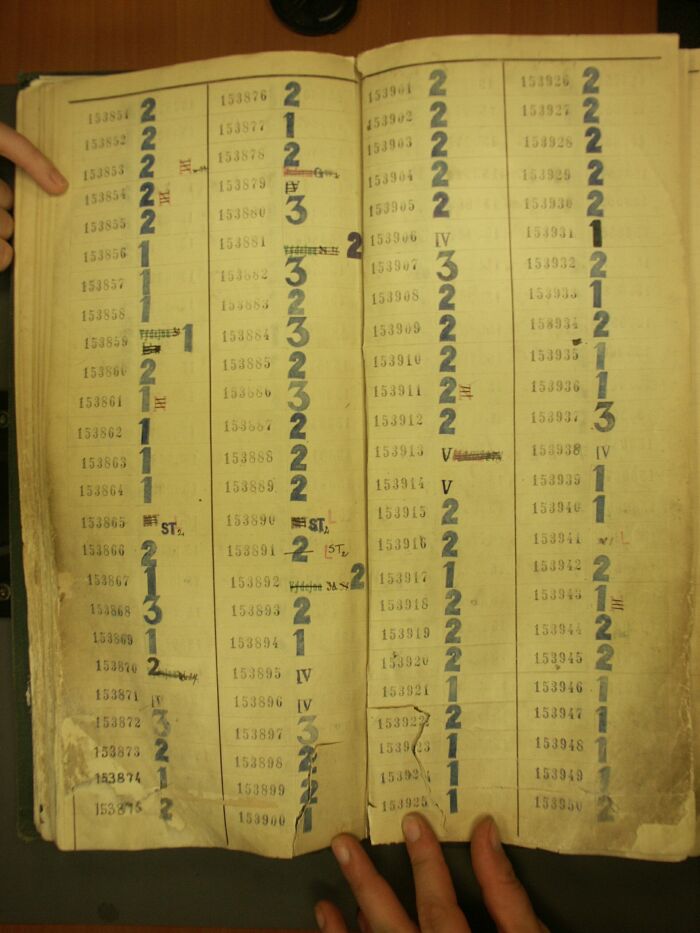 153851 2
153852 2
153853 2 III
153854 2 III
153855 2
153856 1
153857 1
153858 1
153859 Výdejna 1
153860 2
153861 1 III
153862 1
153863 1
153864 1
153865 ST2
153866 2
153867 1
153868 3
153869 1
153870 2
153871 IV
153872 3
153873 2
153874 1
153875 2
153876 2
153877 1
153878 2
153879 IV
153880 3
153881 Výdejna 2
153882 3
153883 2
153884 3
153885 2
153886 3
153887 2
153888 2
153889 2
153890 ST2
153891 2 ST2
153892 Výdejna 2
153893 2
153894 1
153895 IV
153896 IV
153897 3
153898 2
153899 2
153900 1
153901 2
153902 2
153903 2
153904 2
153905 2
153906 IV
153907 3
153908 2
153909 2
153910 2
153911 2 III
153912 2
153913 V
153914 V
153915 2
153916 2
153917 1
153918 2
153919 2
153920 2
153921 1
153922 2
153923 1
153924 1
153925 1
153926 2
153927 2
153928 2
153929 2
153930 2
153931 1
153932 2
153933 1
153934 2
153935 1
153936 1
153937 3
153938 IV
153939 1
153940 1
153941 L
153942 2
153943 1 III
153944 2
153945 2
153946 1
153947 1
153948 1
153949 1
153950 2